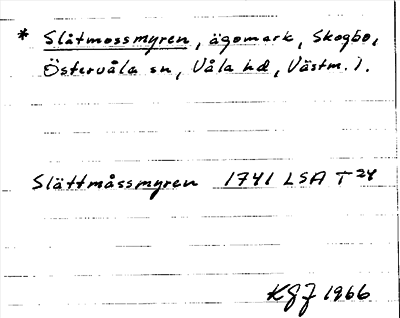 * Slåtmossmyren, ägomark, Skogbo,
Östervåla sn, Våla hd, Västm. l.
Slättmåssmyren 1741 LSA T 24
KGJ 1966